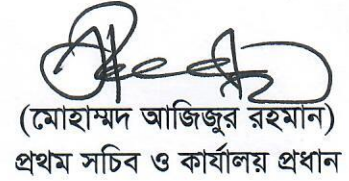 (মোহাম্মদ আজিজুর রহমান)
প্রথম সচিব ও কার্যালয় প্রধান